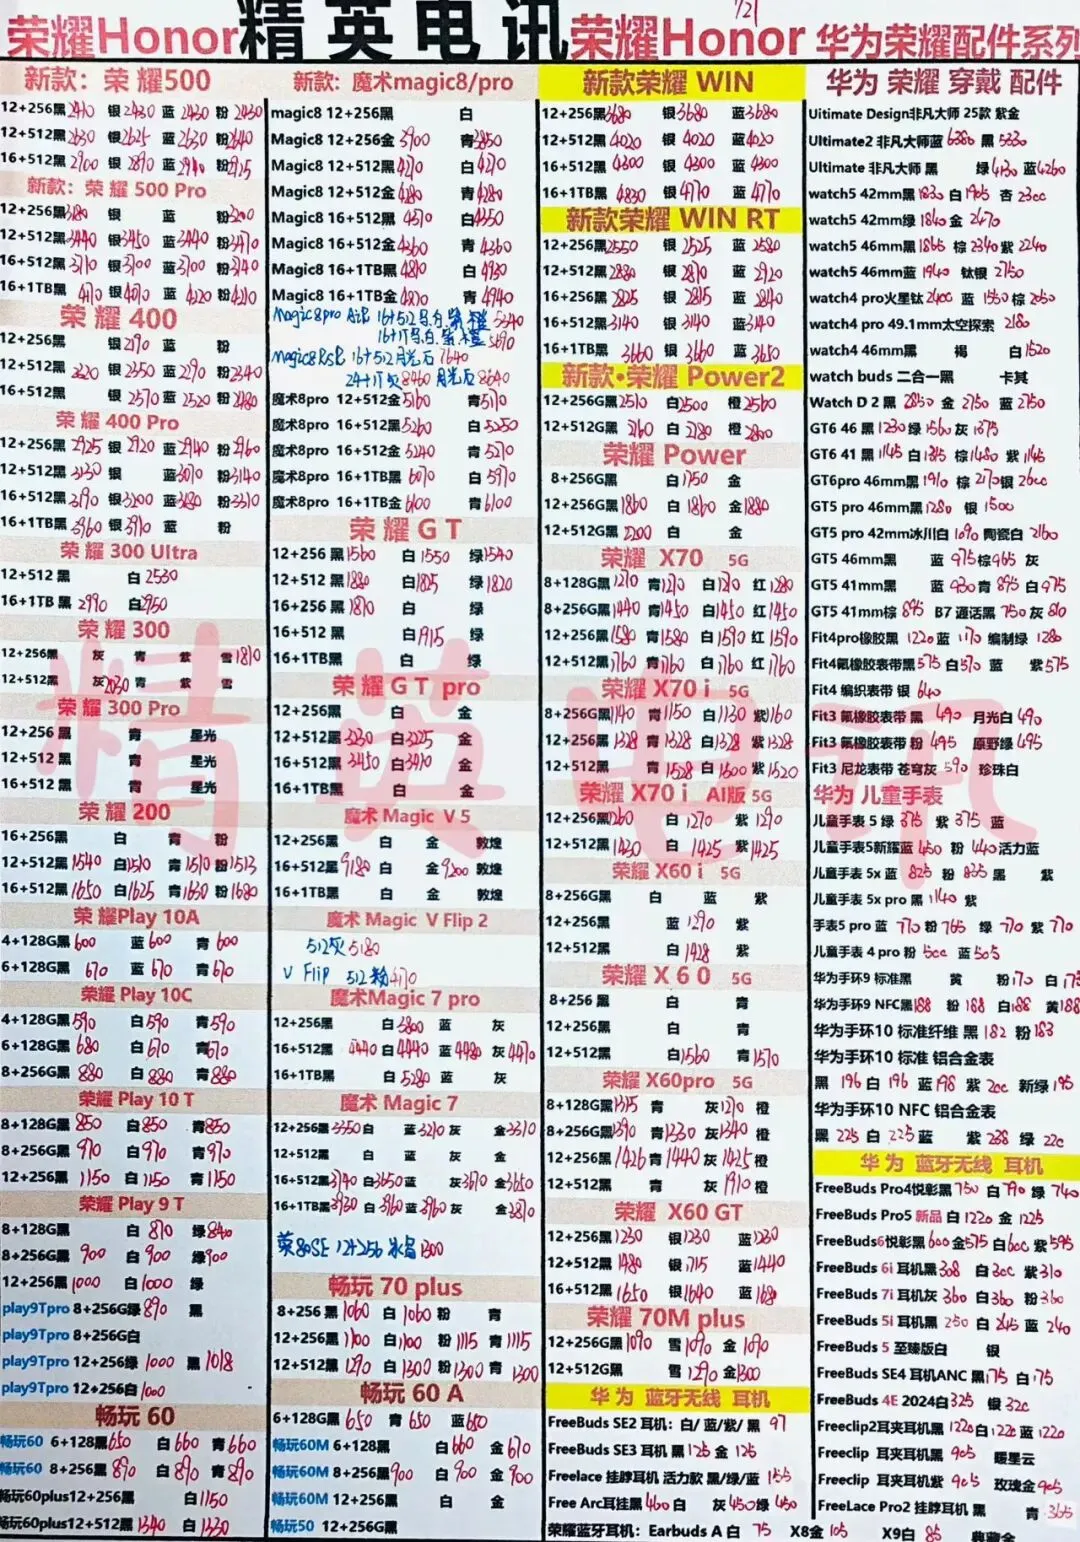 精英电讯
721
荣耀Honor
荣耀Honor
华为荣耀配件系列
新款：荣 耀500
12+256黑2410 银2430 蓝2430 粉2430
12+512黑2630 银2625 蓝2630 粉2640
16+512黑2900 银2890 蓝2910 粉2915
新款：荣 耀 500 Pro
12+256黑3180 银 蓝 粉3200
12+512黑3440 银3450 蓝3440 粉3470
16+512黑3710 银3700 蓝3700 粉3740
16+1TB黑 4170 银4070 蓝 4220 粉4210
荣 耀 400
12+256黑 银2170 蓝 粉
12+512黑 2320 银2350 蓝2270 粉2340
16+512黑 银2570 蓝2520 粉2480
荣 耀 400 Pro
12+256黑2925 银2920 蓝2940 粉2960
12+512黑3130 银 蓝3070 粉3140
16+512黑3190 银3200 蓝3180 粉3310
16+1TB黑3960 银3910 蓝 粉
荣 耀 300 Ultra
12+512 黑 白2530
16+1TB 黑 2990 白2950
荣 耀 300
12+256黑 灰 青 紫 雪1810
12+512黑 灰2030 青 紫 雪
荣 耀 300 Pro
12+256 黑 青 星光
12+512 黑 青 星光
16+512 黑 青 星光
荣 耀 200
16+256黑 白 青 粉
12+512黑1540 白1510 青1510 粉1513
16+512黑1650 白1625 青1630 粉1680
荣 耀Play 10A
4+128G黑600 蓝600 青600
6+128G黑 670 蓝670 青670
荣耀 Play 10C
4+128G黑590 白590 青590
6+128G黑 680 白670 青670
8+256G黑 880 白880 青880
荣耀 Play 10 T
8+128G黑850 白850 青850
8+256G黑 970 白970 青970
12+256黑 1150 白1150 青1150
荣耀 Play 9 T
8+128G黑 白870 绿840
8+256G黑 900 白900 绿900
12+256黑1000 白1000 绿
play9Tpro 8+256G绿890 黑
play9Tpro 8+256G白
play9Tpro 12+256绿 1000 黑1018
play9Tpro 12+256白1000
畅玩 60
畅玩60 6+128黑650 白660 青660
畅玩60 8+256黑890 白890 青890
畅玩60plus12+256黑 白1150
畅玩60plus12+512黑1340 白1330
新款：魔术magic8/pro
magic8 12+256黑 白
Magic8 12+256金3900 青3850
Magic8 12+512黑4210 白4170
Magic8 12+512金4180 青4280
Magic8 16+512黑4370 白4350
Magic8 16+512金4360 青4360
Magic8 16+1TB黑4810 白4930
Magic8 16+1TB金4820 青4940
16+512 5340
16+1T 5690
Magic8RSR 16+512月光石7640
24+1T灰8460 月光石8640
魔术8pro 12+512金5160 青5170
魔术8pro 16+512黑5260 白5250
魔术8pro 16+512金 5240 青5270
魔术8pro 16+1TB黑6070 白5970
魔术8pro 16+1TB金6100 青6100
荣 耀 G T
12+256 黑1560 白1550 绿1540
12+512 黑1880 白1825 绿1820
16+256 黑1870 白 绿
16+512 黑 白1915 绿
16+1TB黑 白 绿
荣 耀 G T pro
12+256黑 白 金
12+512黑3230 白3225 金
16+512黑3450 白3410 金
16+1TB黑 白 金
魔术 Magic V 5
12+256黑 白 金 敦煌
16+512黑9180 白 金9200 敦煌
16+1TB黑 白 金 敦煌
魔术 Magic V Flip 2
512灰5180
V Flip 512粉4170
魔术Magic 7 pro
12+256黑 白3800 蓝 灰
16+512黑 4440 白4440 蓝4480 灰4470
16+1TB黑 白5280 蓝 灰
魔术 Magic 7
12+256黑3350白 蓝3210灰 金3310
12+512黑 白 蓝 灰 金
16+512黑3740白3650蓝 灰3670 金3650
16+1TB黑3930白3960蓝3960灰 金3870
荣80SE 12+256 1300
畅玩 70 plus
8+256 黑1060 白1060粉 青
12+256黑1100 白1100 粉1115 青1115
12+512黑1290 白1300 粉1300 青1300
畅玩 60 A
6+128G黑650 青650 蓝650
畅玩60M 6+128黑 白660 金670
畅玩60M 8+256黑900 白900 金900
畅玩60M 12+256黑 白 金
畅玩50 12+256G黑
新款荣耀 WIN
12+256黑3680 银3680 蓝3680
12+512黑4020 银4020 蓝4020
16+512黑4300 银4300 蓝4300
16+1TB黑 4830 银4770 蓝4770
新款荣耀 WIN RT
12+256黑2550 银2525 蓝2580
12+512黑2880 银2870 蓝2920
16+256黑2825 银2815 蓝2840
16+512黑3140 银3140 蓝3140
16+1TB黑 3660 银3660 蓝3650
新款·荣耀 Power2
12+256G黑2510 白2500 橙2560
12+512G黑 2760 白2780 橙2800
荣耀 Power
8+256G黑 白1750 金
12+256G黑1860 白1860 金1880
12+512G黑2200 白 金
荣耀 X70 5G
8+128G黑1270 青1270 白1270 红1280
8+256G黑1440 青1450 白1450 红1450
12+256黑1580 青1580 白1590 红1590
12+512黑1760 青1760 白1760 红1760
荣耀 X70 i 5G
8+256G黑1140 青1150 白1130 紫1160
12+256黑1328 青1328 白1328 紫1328
12+512黑 青1528 白1600 紫1520
荣耀 X70 i AI版 5G
12+256黑1260 白1270 紫1290
12+512黑1430 白1425 紫1425
荣耀 X60 i 5G
8+256G黑 白 蓝 紫
12+256黑 蓝1290 紫
12+512黑 白1428 紫
荣耀 X 6 0 5G
8+256 黑 白 青
12+256黑 白 青
12+512黑 白1560 青1570
荣耀 X60pro 5G
8+128G黑1315 青 灰1270 橙
8+256G黑1390 青1330 灰1340 橙
12+256黑1426 青1440 灰1425 橙
12+512黑 青 灰1910 橙
荣耀 X60 GT
12+256黑1230 银1230 蓝1230
12+512黑1480 银1715 蓝1440
16+512黑1650 银1640 蓝1680
荣耀 70M plus
12+256G黑1090 雪1090 金1090
12+512G黑 雪1290 金1300
华 为 蓝牙无线 耳机
FreeBuds SE2 耳机：白/蓝/紫/黑 97
FreeBuds SE3 耳机 黑125 金 125
Freelace 挂脖耳机 活力款 黑/绿/蓝 155
Free Arc耳挂黑460 白 灰450绿450
荣耀蓝牙耳机：Earbuds A 白 75 X8金 105 X9白 85 典藏金
华为 荣耀 穿戴 配件
Uitimate Design非凡大师 25款 紫金
Ultimate2 非凡大师蓝6380 黑 5330
Ultimate 非凡大师 黑 绿4130 蓝4260
watch5 42mm黑1830 白1905 杏 2300
watch5 42mm绿1840 金 2470
watch5 46mm黑1865 棕2340 紫2240
watch5 46mm蓝1940 钛银2750
watch4 pro火星钛2400 蓝 1550 棕2050
watch4 pro 49.1mm太空探索 2180
watch4 46mm黑 褐 白1520
watch buds 二合一黑 卡其
Watch D 2 黑 2850 金 2750 蓝 2750
GT6 46 黑1230 绿1560 灰1375
GT6 41 黑1145 白1315 棕1480 紫1145
GT6pro 46mm黑1910 棕2170 银2600
GT5 pro 46mm黑1280 银1500
GT5 pro 42mm冰川白1090 陶瓷白 2160
GT5 46mm黑 蓝 975棕965 灰
GT5 41mm黑 蓝 930青895 白975
GT5 41mm棕 895 B7 通话黑 750 灰 810
Fit4pro橡胶黑 1220蓝1170 编制绿 1280
Fit4氟橡胶表带黑575 白570 蓝 紫575
Fit4 编织表带 银 640
Fit3 氟橡胶表带 黑 490 月光白490
Fit3 氟橡胶表带 粉 495 原野绿495
Fit3 尼龙表带 苍穹灰 590 珍珠白
华为 儿童手表
儿童手表 5 绿 375 紫 375 蓝
儿童手表5新耀蓝450 粉 440活力蓝
儿童手表 5x 蓝 825 粉 835 黑 紫
儿童手表 5x pro 黑1140 紫
手表5 pro 蓝 770 粉 765 绿 770 紫 770
儿童手表 4 pro 粉 500 蓝505
华为手环9 标准黑 黄 粉170 白 175
华为手环9 NFC黑188 粉 188 白188 黄188
华为手环10 标准纤维 黑 182 粉183
华为手环10 标准 铝合金表
黑 196 白 196 蓝198 紫 200 新绿 195
华为手环10 NFC 铝合金表
黑 225 白 225 蓝 紫 238 绿 220
华 为 蓝牙无线 耳机
FreeBuds Pro4悦彰黑750 白790 绿 740
FreeBuds Pro5 新品 白 1220 金 1225
FreeBuds6悦彰黑600金575白600紫595
FreeBuds 6i 耳机黑308 白300 紫310
FreeBuds 7i 耳机灰 360 白360 粉360
FreeBuds 5i 耳机黑 250 白245 蓝 240
FreeBuds 5 至臻版白 银
FreeBuds SE4 耳机ANC 黑175 白175
FreeBuds 4E 2024白325 银 320
Freeclip2耳夹耳机 黑 1220白1220 蓝1220
Freeclip 耳夹耳机 黑 905 暖星云
Freeclip 耳夹耳机紫 905 玫瑰金905
FreeLace Pro2 挂脖耳机 黑 青 365
精英电讯